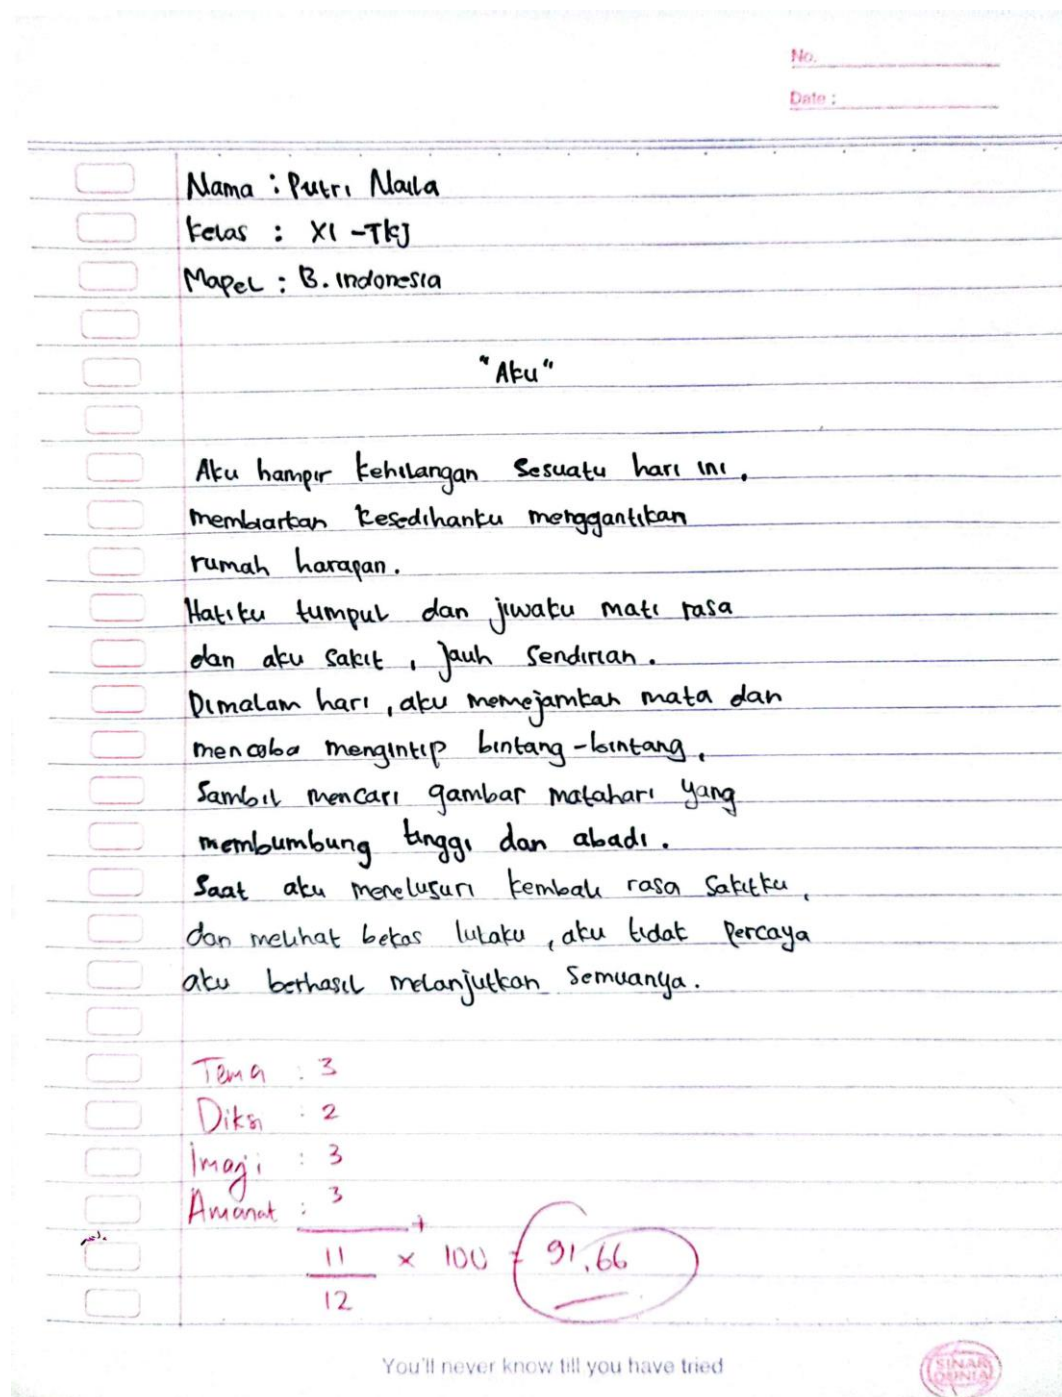 No.
Date :
Nama : Putri Naila
Kelas : XI -TKJ
Mapel : B. Indonesia
"Aku"
Aku hampir kehilangan sesuatu hari ini.
membiarkan kesedihanku menggantikan
rumah harapan.
Hatiku tumpul dan jiwaku mati rasa
dan aku sakit, jauh sendirian.
Dimalam hari, aku memejamkan mata dan
mencoba mengintip bintang-bintang,
Sambil mencari gambar matahari yang
membumbung tinggi dan abadi.
Saat aku menelusuri kembali rasa sakitku,
dan melihat bekas lukaku, aku tidak percaya
aku berhasil melanjutkan semuanya.
Tema : 3
Diksi : 2
Imaji : 3
Amanat : 3
+
11 × 100 = 91,66
12
You'll never know till you have tried
SINAR
DUNIA